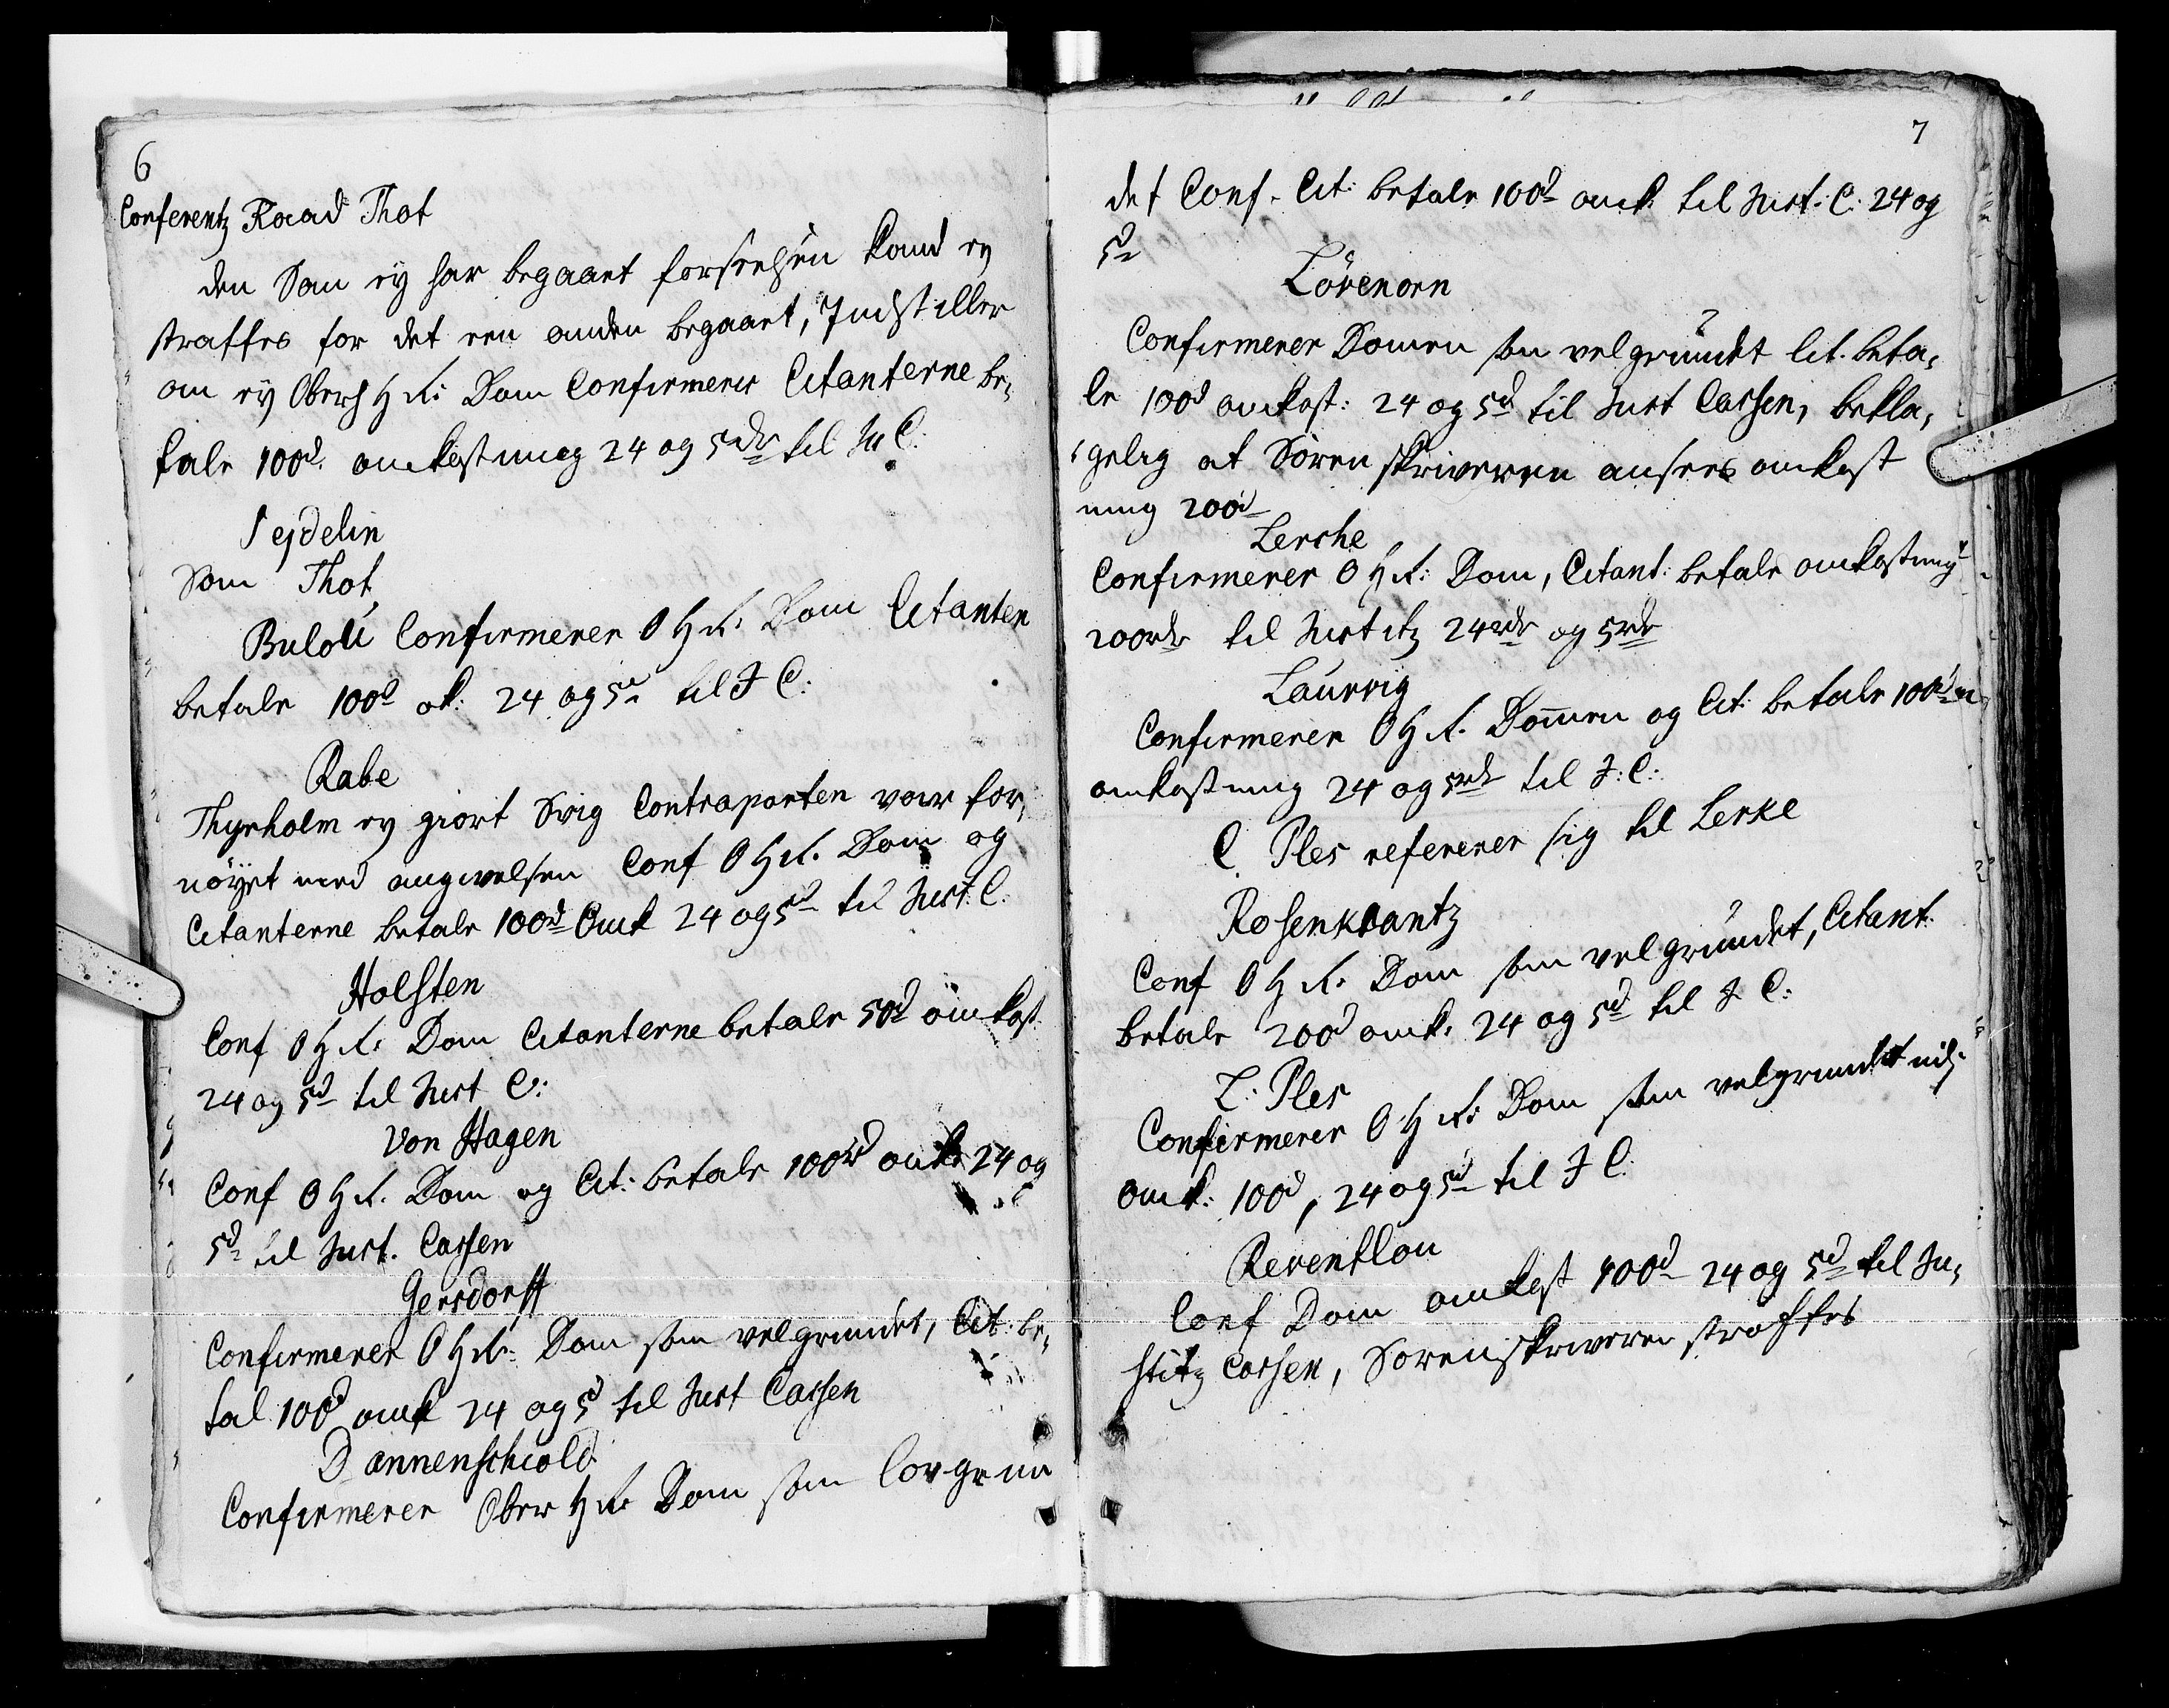 6
Conferentz Raad Thot
den Som ey har begaaet forseelsen kand ey
straffes for det een anden begaaet, Indstiller
om ey Obers H R: Dom Confirmeres Citanterne be,
tale 100d. omkostning 24 og 5 rdr til Ju C:
Seydelin
Som Thot
Bulou Confirmerer O H R: Dom Citanten
betale 100d ok: 24 og 5d til J C:
Rabe
Thyrholm ey giort Svig Contraparten var for,
nöyet med angivelsen Conf O H R. Dom og
Citanterne betale 100d Omk 24 og 5d til Just. C.
Holsten
Conf O H R: Dom Citanterne betale 50d omkost
24 og 5d til Just C:
Von Hagen
Conf O H R. Dom og Cit: betale 100rd omk: 24 og
5d til Just. Cassen
Gersdorff
Confirmerer O H R: Dom som velgrundet, Cit: be,
tal 100d omk 24 og 5d til Just Cassen
Dannenschiold
Confirmerer Ober H R: Dom som lovgrun
7
det Conf. Cit: betale 100d omk. til Just. C. 24 og
5d
Lövenorn
Confirmerer Domen som velgrundet Cit. beta,
le 100d omkost: 24 og 5d til Just Cassen, bekla,
gelig at Sörenskriveren ansees omkost
ning 200d
Lerche
Confirmerer O H R: Dom, Citant: betale omkostning
200rdr til Justitz 24rdr og 5rdr
Laurvig
Confirmerer O H R. Dommen og Cit: betale 100d
omkostning 24 og 5rdr til J: C:
C. Ples refererer sig til Lerke
Rosenkrantz
Conf O H R: Dom som velgrundet, Citant.
betale 200d omk. 24 og 5d til J C:
L: Ples
Confirmerer O H R: Dom som velgrundet
Omk: 100d, 24 og 5d til J C:
Reventlou
Conf Dom omkost 100d 24 og 5d til Ju,
stitz Cassen, Sorenskriveren straffes